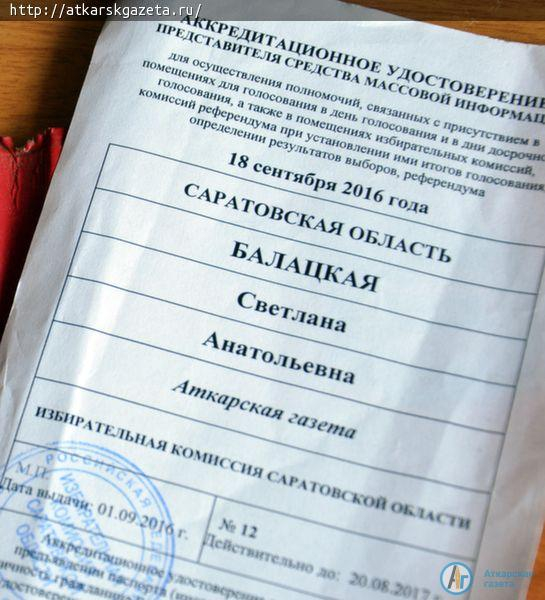 http://atkarskgazeta.ru/
АККРЕДИТАЦИОННОЕ УДОСТОВЕРЕНИЕ
ПРЕДСТАВИТЕЛЯ СРЕДСТВА МАССОВОЙ ИНФОРМАЦ
для осуществления полномочий, связанных с присутствием в
помещениях для голосования в день голосования и в дни досрочно
голосования, а также в помещениях избирательных комиссий,
комиссий референдума при установлении ими итогов голосования
определении результатов выборов, референдума
18 сентября 2016 года
САРАТОВСКАЯ ОБЛАСТЬ
БАЛАЦКАЯ
Светлана
Анатольевна
Аткарская газета
ИЗБИРАТЕЛЬНАЯ КОМИССИЯ САРАТОВСКОЙ ОБЛАСТИ
М.П.
РОССИЙСКАЯ
Дата выдачи: 01.09.2016 г.
№ 12
Действительно до: 20.08.2017 г
Аккредитационное удостоверени
предъявлении паспорта
Аткарская
газета